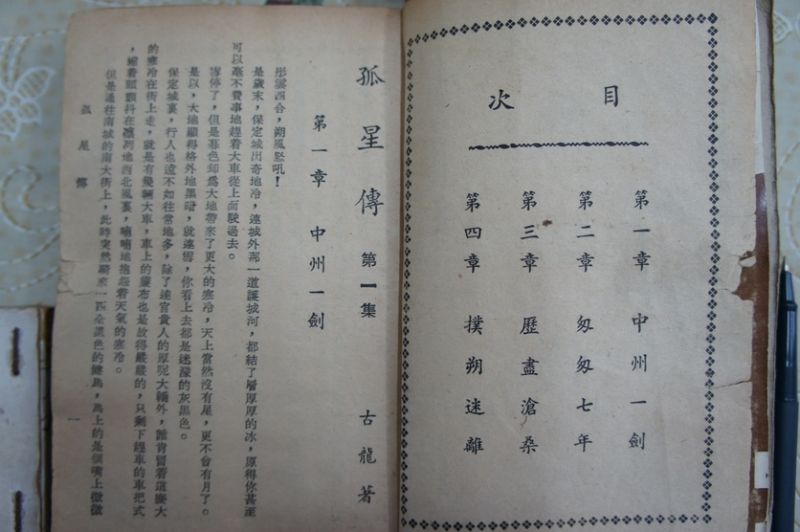 目次
第一章 中州一劍
第二章 匆匆七年
第三章 歷盡滄桑
第四章 撲朔迷離
孤星傳 第一集 古龍著
第一章 中州一劍
彤雲四合,朔風怒吼!
是歲末,保定城出奇地冷,連城外那一道護城河,都結了層厚厚的冰,厚得你甚至
可以毫不費事地趕着大車從上面駛過去。
雪停了,但是暮色却爲大地帶來了更大的寒冷,天上當然沒有星,更不會有月了。
是以,大地顯得格外地黑暗,就連雪,你看上去都是迷濛的灰黑色。
保定城裏,行人也遠不如往常地多,除了達官貴人的厚呢大轎外,誰肯冒着這麼大
的寒冷在街上走,就是有幾輛大車,車上的簾布也是放得嚴嚴的,只剩下趕車的車把式
,縮着頭顫抖在凜冽地西北風裏,喃喃地抱怨着天氣的寒冷。
但是通往南城的南大街上,此時突然騎來一匹全黑色的健馬,馬上的是個嘴上微微
孤星傳
一